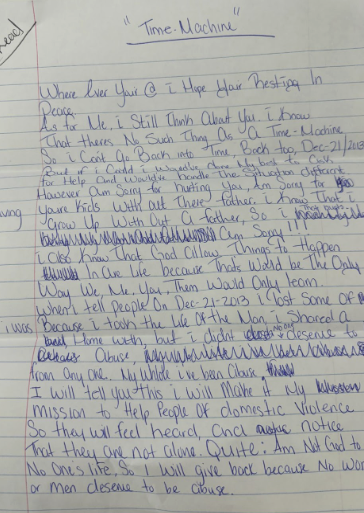 "Time-Machine"
Where Ever Your @ i Hope Your Resting In
Peace.
As for Me, i Still Think About You. i Know
That theres No Such Thing As A Time-Machine
So i Cant Go Back into Time, Back too, Dec-21/2013
But if i Could i
for Help Handle The Situation different
However Am Sorry for hurting You, Am Sorry for
Youre Kids With out There father. i Know That i
Grow Up With Out A father, So i
Am Sorry!!!
i also Know That God allow Things to Happen
In Our life because That's Would be The Only
Way We, Me, You, Them Would Only learn.
When i tell People On Dec-21-2013 i lost Some of
i was Because i took the life Of the Man i Shared a
Home with, but i didnt deserve to
Abuse,
from Any one. My Whole i've ban Abuse
I will tell you this i will Make it My
mission to Help People Of domestic Violence
So they will feel heard, And notice
That they are not alone. Quite: Am Not God to
No One's life. So I will give back because No
or men deserve to be abuse.